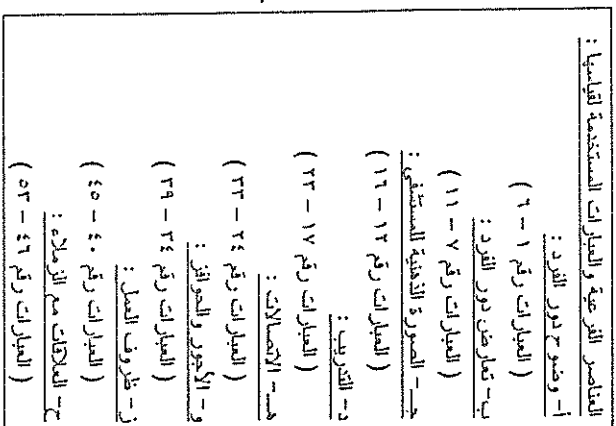 العناصر الفرعية والعبارات المستخدمة لقياسها :
أ- وضوح دور الفرد :
( العبارات رقم ١ – ٦ )
ب- تعارض دور الفرد :
( العبارات رقم ٧ – ١١ )
جـ- الصورة الذهنية للمستشفى :
( العبارات رقم ١٢ – ١٦ )
د- التدريب :
( العبارات رقم ١٧ – ٢٣ )
هـ- الاتصالات :
( العبارات رقم ٢٤ – ٣٣ )
و- الأجور والحوافز :
( العبارات رقم ٣٤ – ٣٩ )
ز- ظروف العمل :
( العبارات رقم ٤٠ – ٤٥ )
ح- العلاقات مع الزملاء :
( العبارات رقم ٤٦ – ٥٣ )